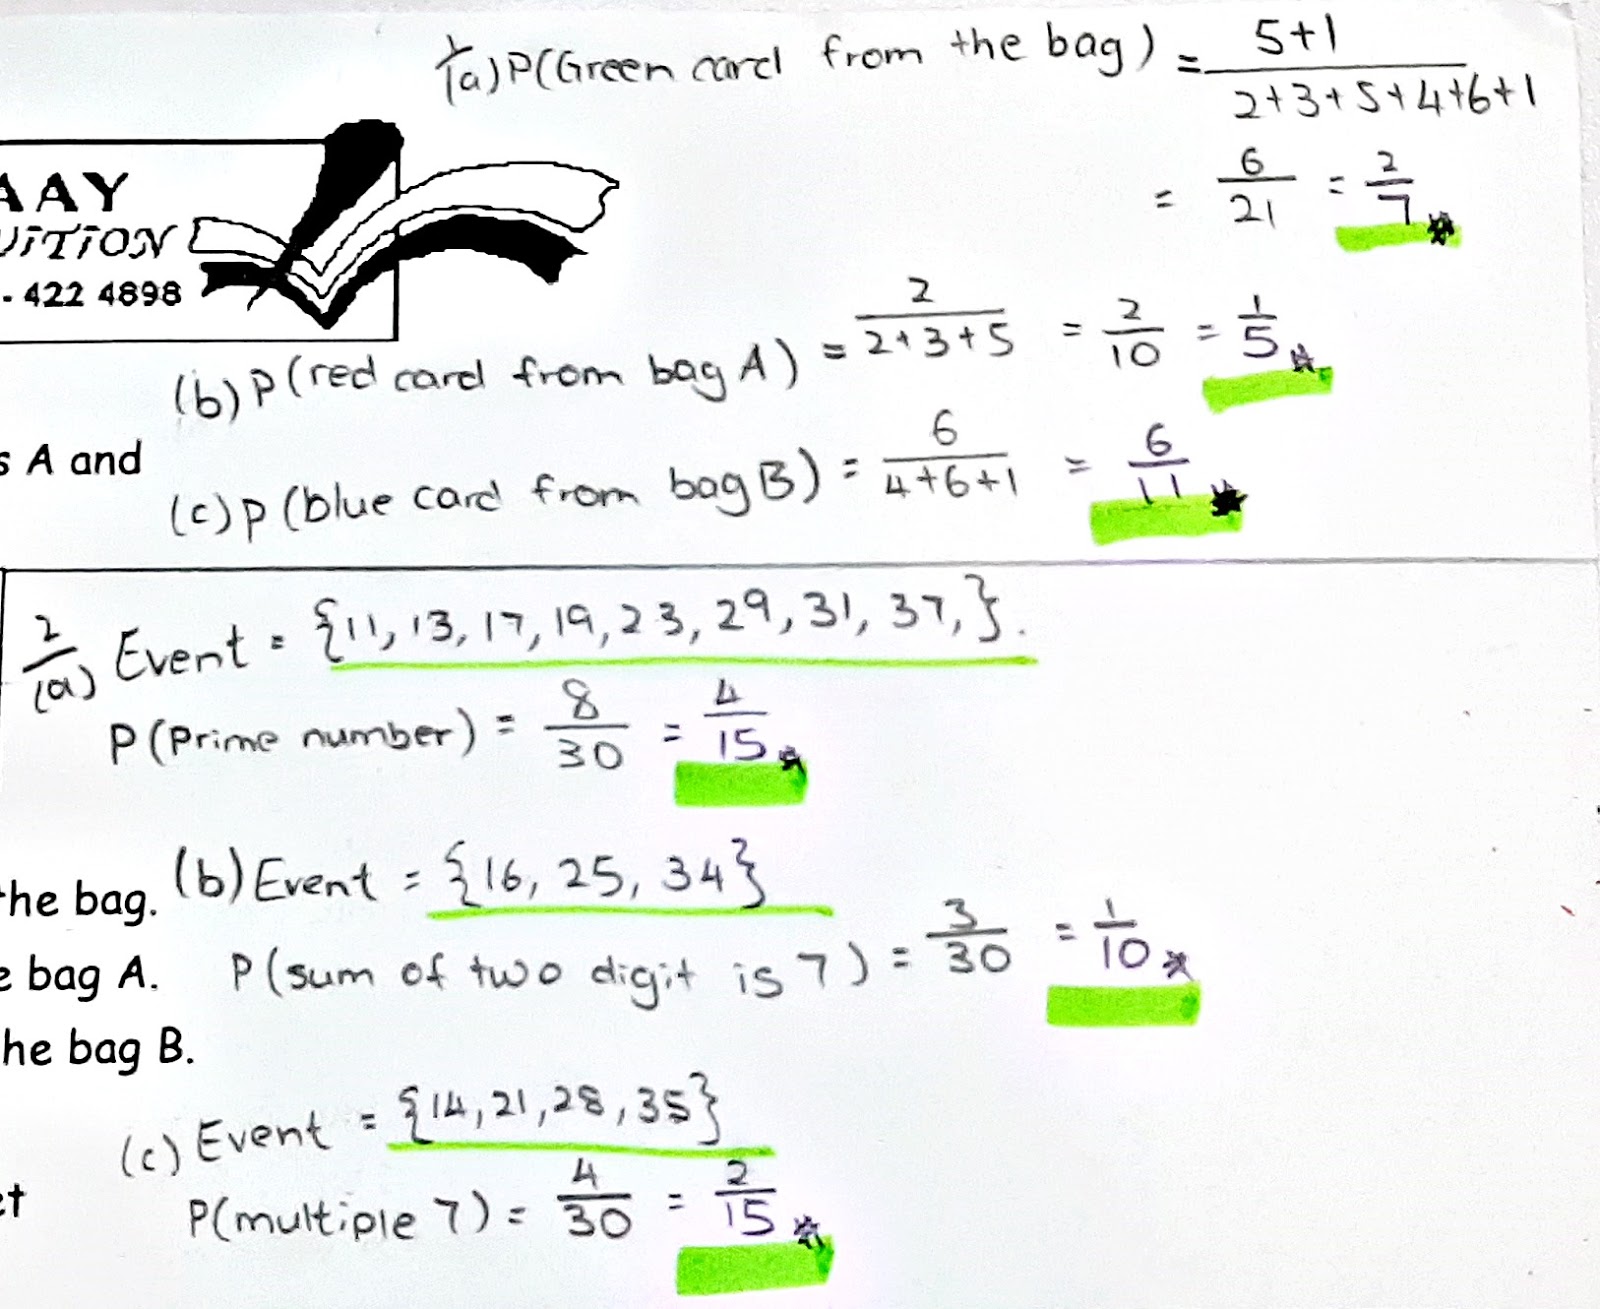 1/(a) P(Green card from the bag) = 5+1 / 2+3+5+4+6+1
= 6/21 = 2/7
AAY
UiTiON
- 422 4898
(b) P(red card from bag A) = 2 / 2+3+5 = 2/10 = 1/5
s A and
(c) P(blue card from bag B) = 6 / 4+6+1 = 6/11
2/(a) Event = {11, 13, 17, 19, 23, 29, 31, 37,}.
P(Prime number) = 8/30 = 4/15
he bag.
(b) Event = {16, 25, 34}
e bag A.
P(sum of two digit is 7) = 3/30 = 1/10
he bag B.
(c) Event = {14, 21, 28, 35}
et
P(multiple 7) = 4/30 = 2/15